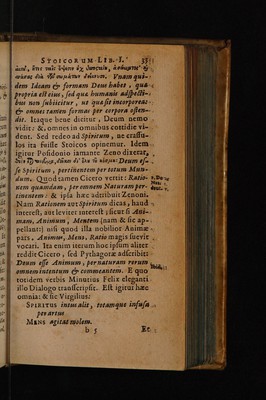 STOICORUM LIB. I. 33
Vnam qui-
dem Ideam & formam Deus habet, qua
propria est eius, sed qua humanis adspecti-
bus non subiicitur, ut qua sit incorporea:
& omnes tamen formas per corpora osten-
dit. Itaque bene dicitur, Deum nemo
vidit: &, omnes in omnibus cottidie vi-
dent. Sed redeo ad Spiritum, ne crassu-
los ita fuisse Stoicos opinemur. Idem
igitur Posidonio iamante Zeno dixerat,
Deum es-
se Spiritum, pertinentem per totum Mun-
dum. Quod tamen Cicero vertit: Ratio-
nem quandam, per omnem Naturam per-
tinentem: & ipsa hæc adtribuit Zenoni.
Nam Rationem aut Spiritum dicas, haud
interest, aut leviter interest; sicut & Ani-
mam, Animum, Mentem (nam & sic ap-
pellant) nisi quod illa nobilior Animæ
pars, Animus, Mens, Ratio magis suevit
vocari. Ita enim iterum hoc ipsum aliter
reddit Cicero, sed Pythagoræ adscribit:
Deum esse Animum, per naturam rerum
omnem intentum & commeantem. E quo
totidem verbis Minutius Felix eleganti
illo Dialogo transscripsit. Est igitur hæc
omnia: & sic Virgilius:
SPIRITUS intus alit, totamque infusa
per artus
MENS agitat molem.
b 5 Et